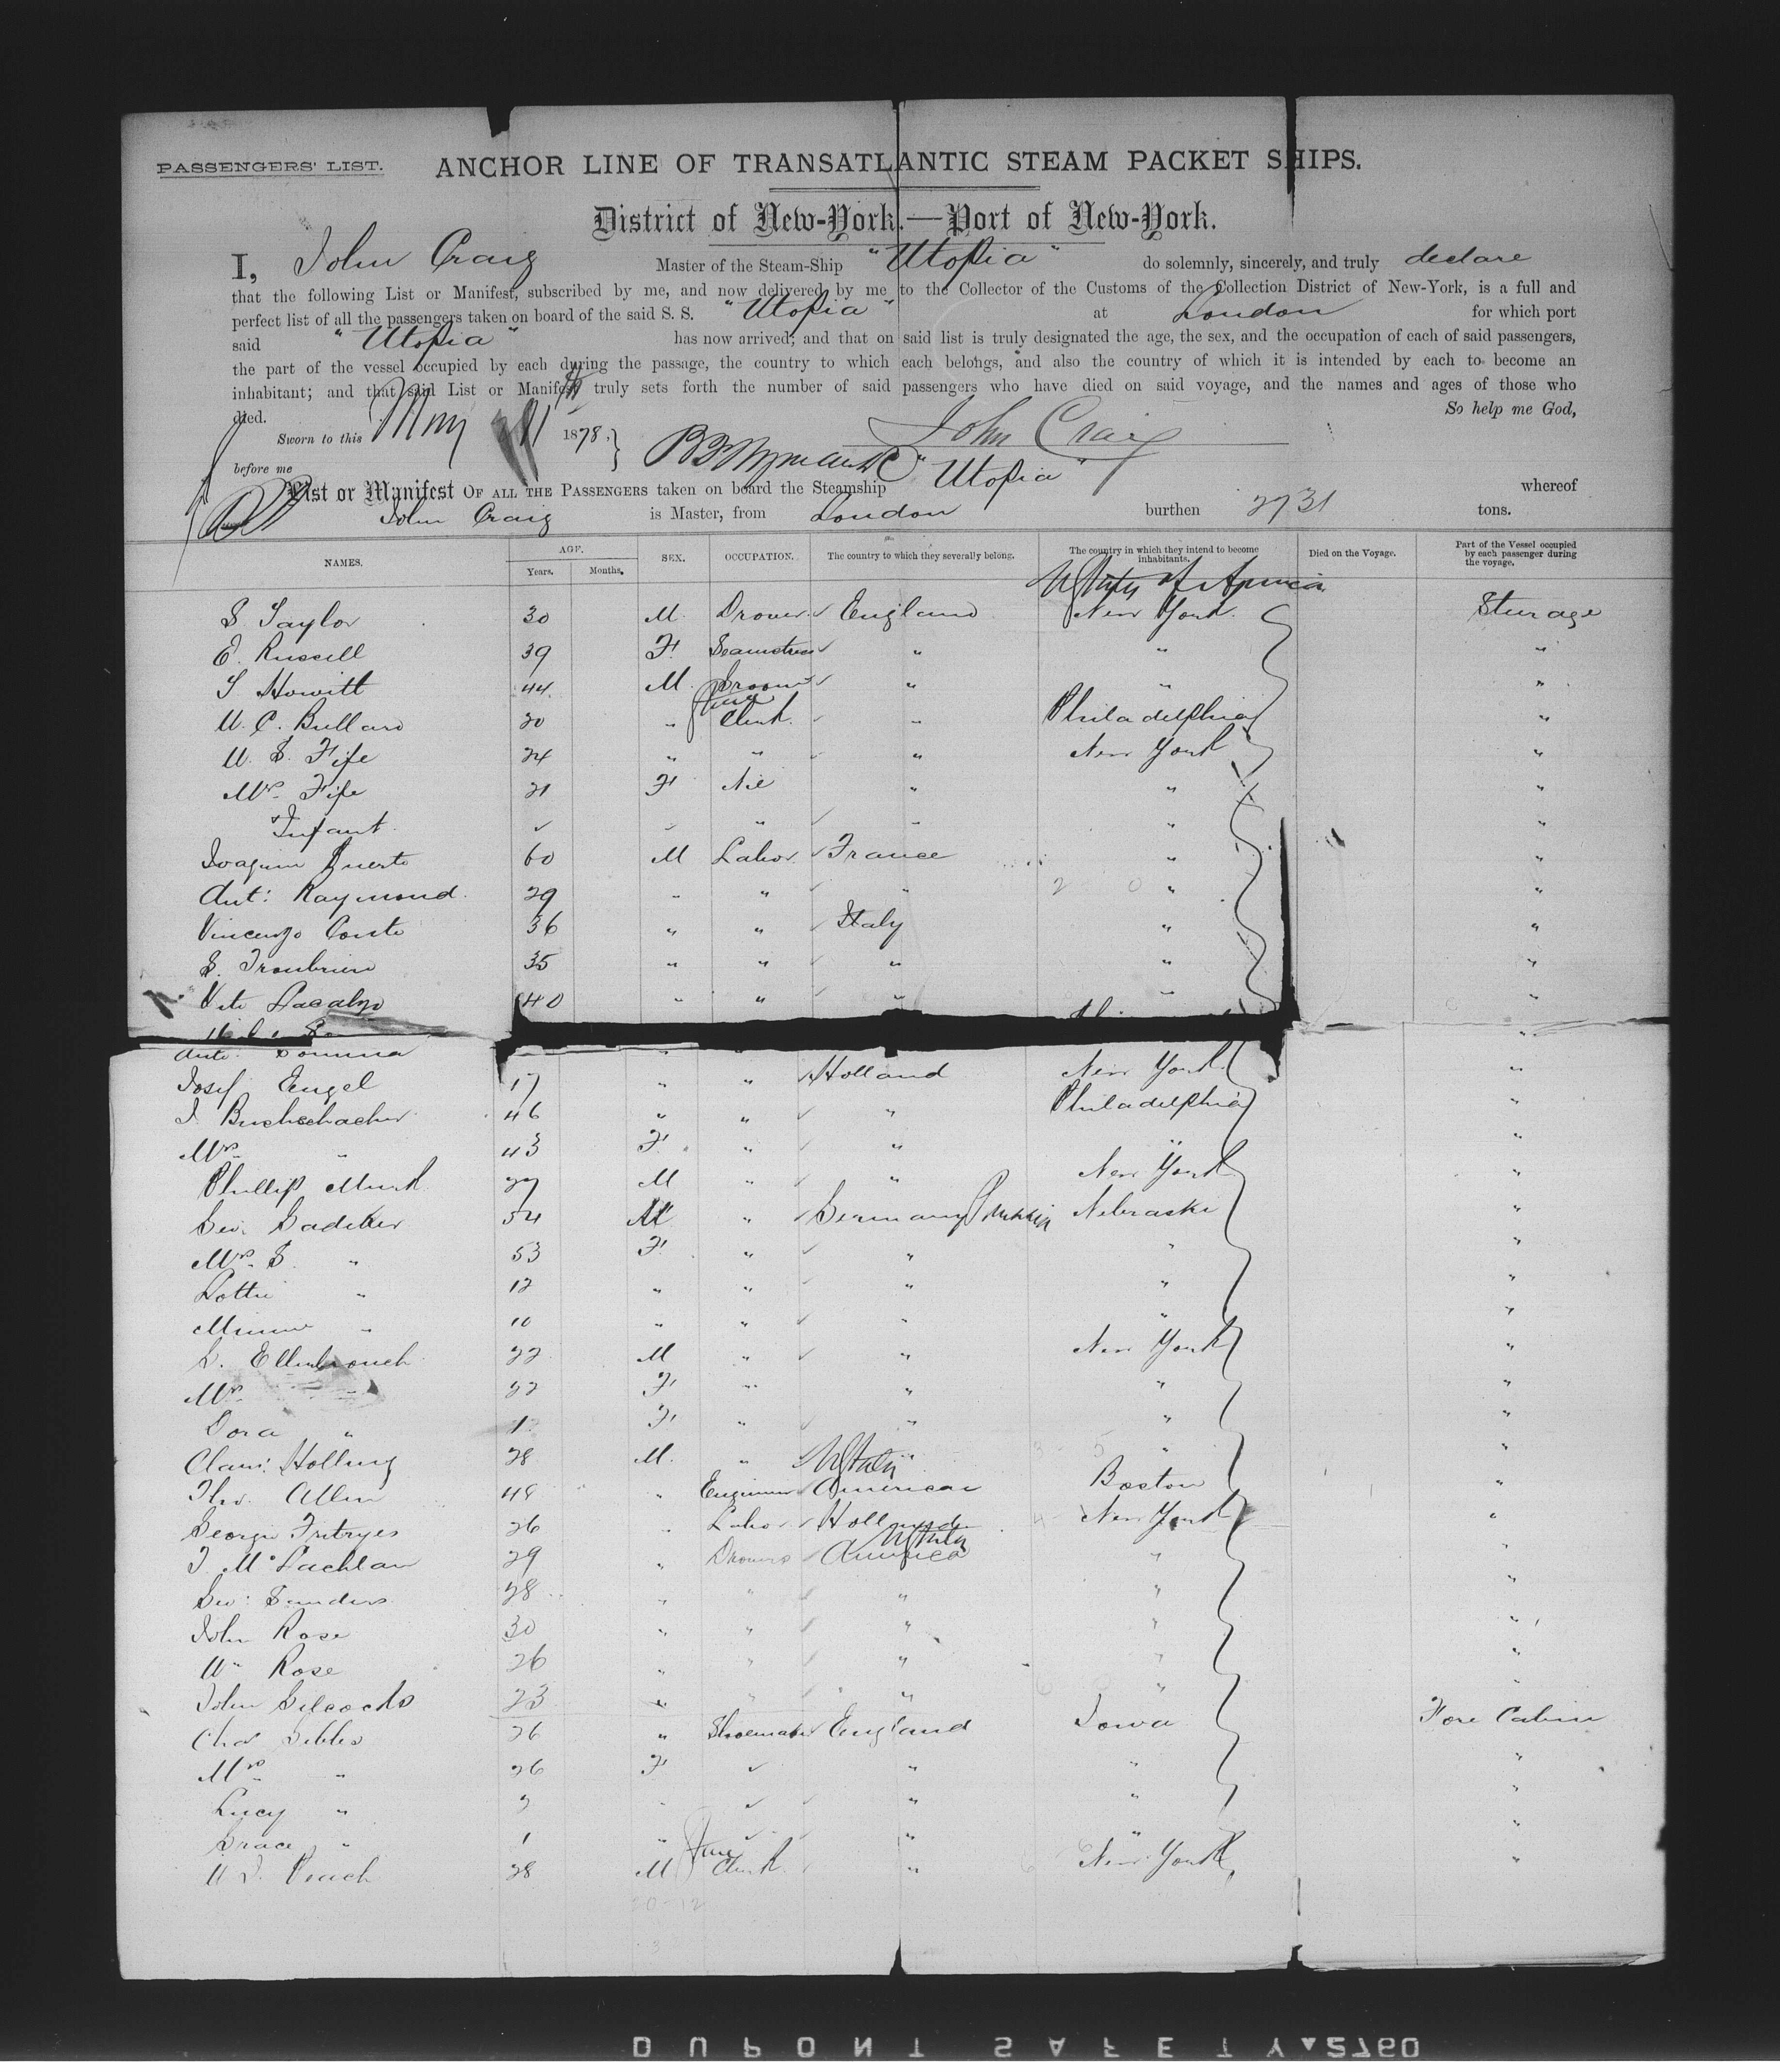 PASSENGERS' LIST. ANCHOR LINE OF TRANSATLANTIC STEAM PACKET SHIPS.
District of New-York.—Port of New-York.
I, John Craig Master of the Steam-Ship "Utopia" do solemnly, sincerely, and truly declare
that the following List or Manifest, subscribed by me, and now delivered by me to the Collector of the Customs of the Collection District of New-York, is a full and
perfect list of all the passengers taken on board of the said S. S. "Utopia" at London for which port
said "Utopia" has now arrived; and that on said list is truly designated the age, the sex, and the occupation of each of said passengers,
the part of the vessel occupied by each during the passage, the country to which each belongs, and also the country of which it is intended by each to become an
inhabitant; and that said List or Manifest truly sets forth the number of said passengers who have died on said voyage, and the names and ages of those who
died. So help me God,
Sworn to this May 1878. John Craig
before me
List or Manifest OF ALL THE PASSENGERS taken on board the Steamship "Utopia" whereof
John Craig is Master, from London burthen 2731 tons.
NAMES. AGE. Years. Months. SEX. OCCUPATION. The country to which they severally belong. The country in which they intend to become inhabitants. Died on the Voyage. Part of the Vessel occupied by each passenger during the voyage.
U States of America
S Taylor 30 M. Drover England New York Sturage
E. Russell 39 F. Seamstress " " "
S Howitt 44 M. Groom " " "
W. C. Bullard 20 " Clerk. " Philadelphia "
W. S. Fife 24 " " " New York "
Mrs. Fife 21 F Nil " " "
Infant " " " "
Joaquim Querto 60 M Labor. France " "
Ant: Raymond. 29 " " " " "
Vincenzo Conte 36 " " Italy " "
S. 35 " " " " "
Vito 40 " " " " "
Anto. " " "
Josef Engel 17 " " Holland New York "
J. Buchschacher 46 " " " Philadelphia "
Mrs. " 43 F. " " " "
Phillip Munk 27 M " " New York "
Geo. 54 M " Germany Prussia Nebraska "
Mrs. S. " 53 F. " " " "
Lottie " 12 " " " " "
Minnie " 10 " " " " "
L. 22 M " " New York "
Mrs. " 22 F " " " "
Dora " 1 F " " " "
Claus: Holling 28 M. " " " "
U States
Theo. Allen 48 " Engineer American Boston "
George 26 " Labor Holland New York "
U States
J. McLachlan 29 " Drovers America " "
Geo: Sanders 28 " " " " "
John Rose 30 " " " " "
Wm Rose 26 " " " " "
John 23 " " " " "
Chas Gibbs 26 " Shoemaker England Iowa Fore Cabin
Mrs. " 26 F " " "
Lucy " " " "
Grace " 1 " " " "
W J. Veach 28 M Clerk. " New York "
DUPONT SAFETY 2760